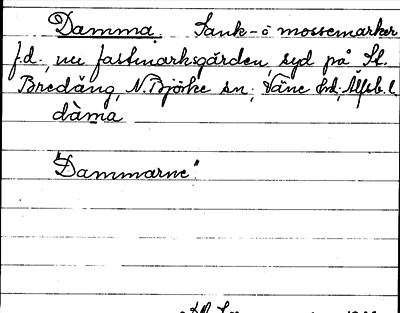 Damma. Sank- o mossemarker
f.d., nu fastmarksgärden syd på St.
Bredäng, N. Björke sn; Väne hd; Älfsb. l.
dàma
"Dammarne".